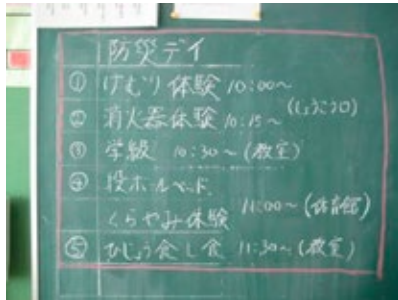 防災デイ
① けむり体験 10:00〜
② 消火器体験 10:15〜(しょうこうロ)
③ 学級 10:30〜(教室)
④ 段ボールベッド
くらやみ体験 11:00〜(体育館)
⑤ ひじょう食し食 11:30〜(教室)